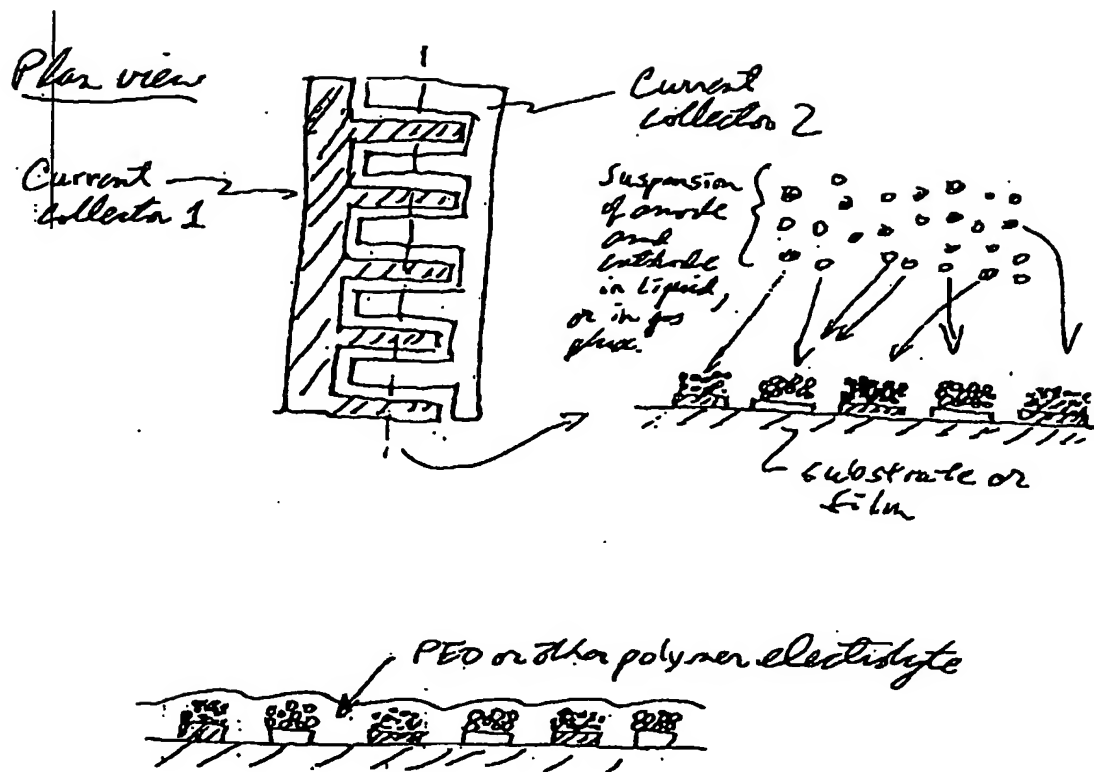 Plan view
Current
collector 2
Current
collector 1
suspension
of anode
and
cathode
in liquid,
or in gas
phase.
substrate or
film
PEO or other polymer electrolyte